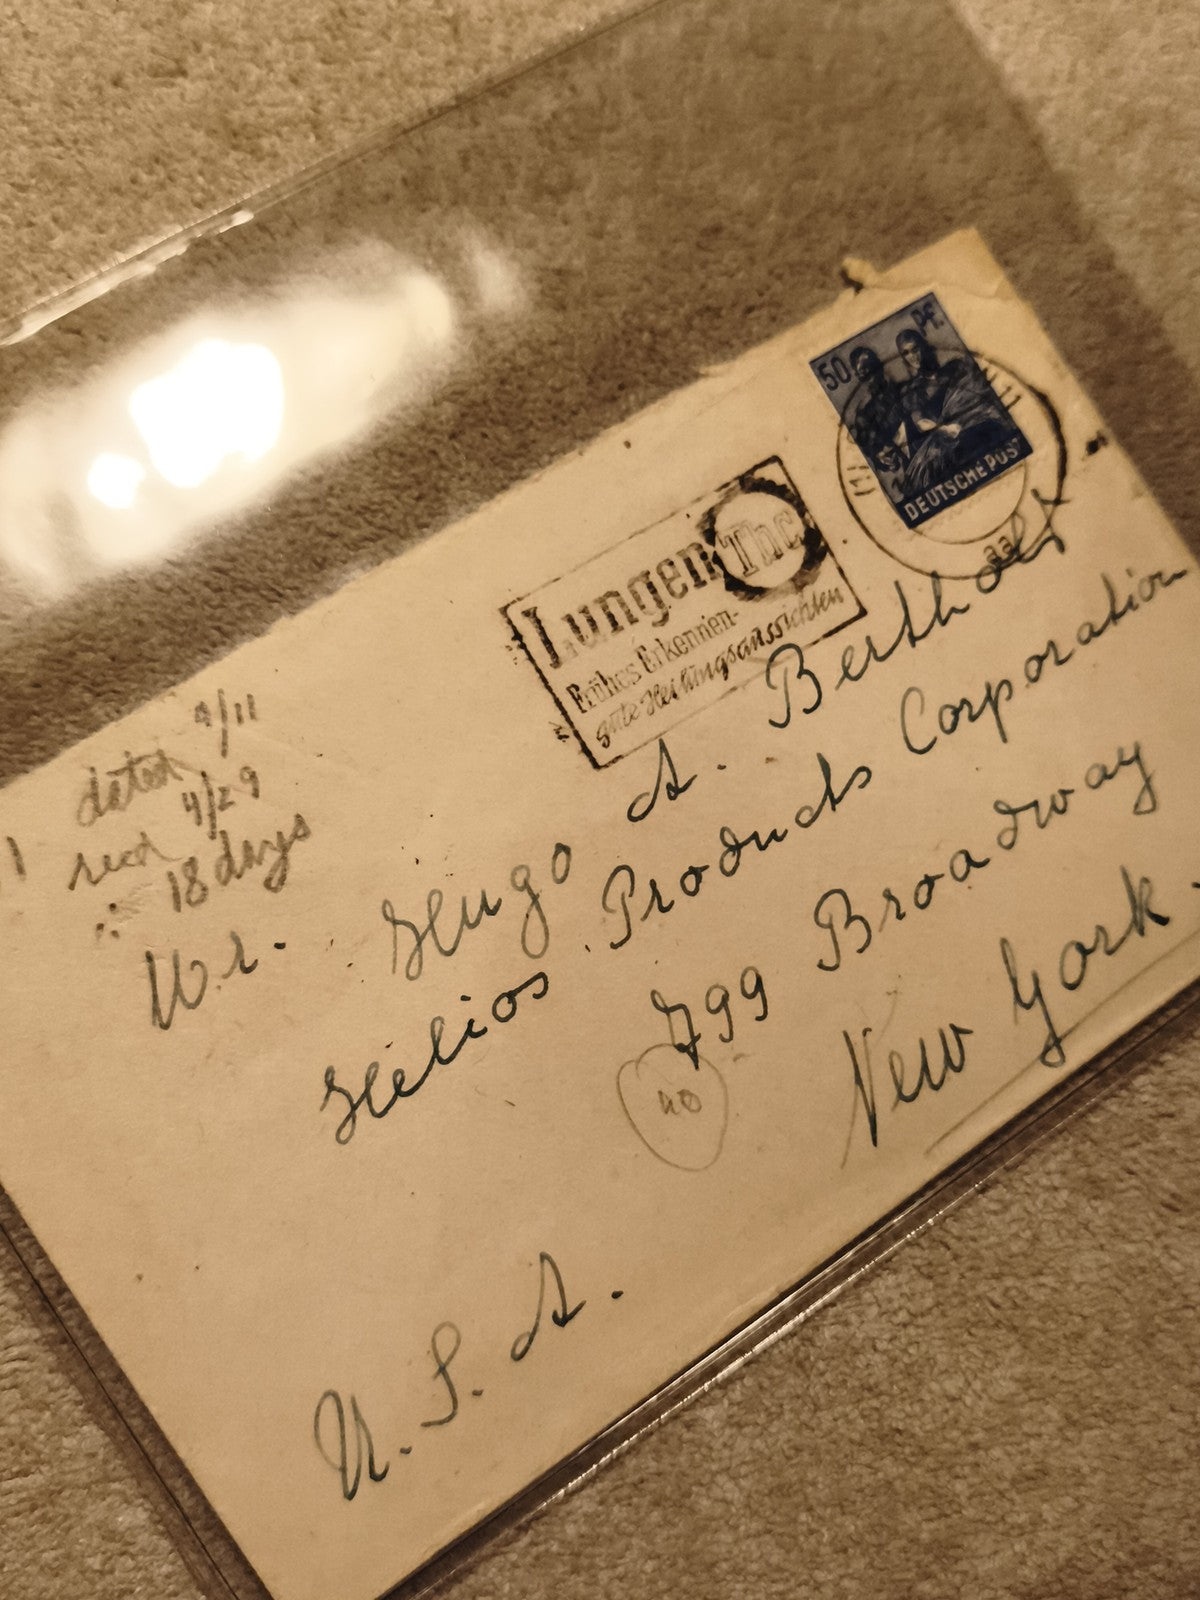 50 Pf.
DEUTSCHE POST
aa
Lungen Tbc
Frühes Erkennen-
gute Heilungsaussichten
dated 4/11
recd 4/29
∴ 18 days
Mr. Hugo A. Berthold
Helios Products Corporation
799 Broadway
New York.
40
U. S. A.